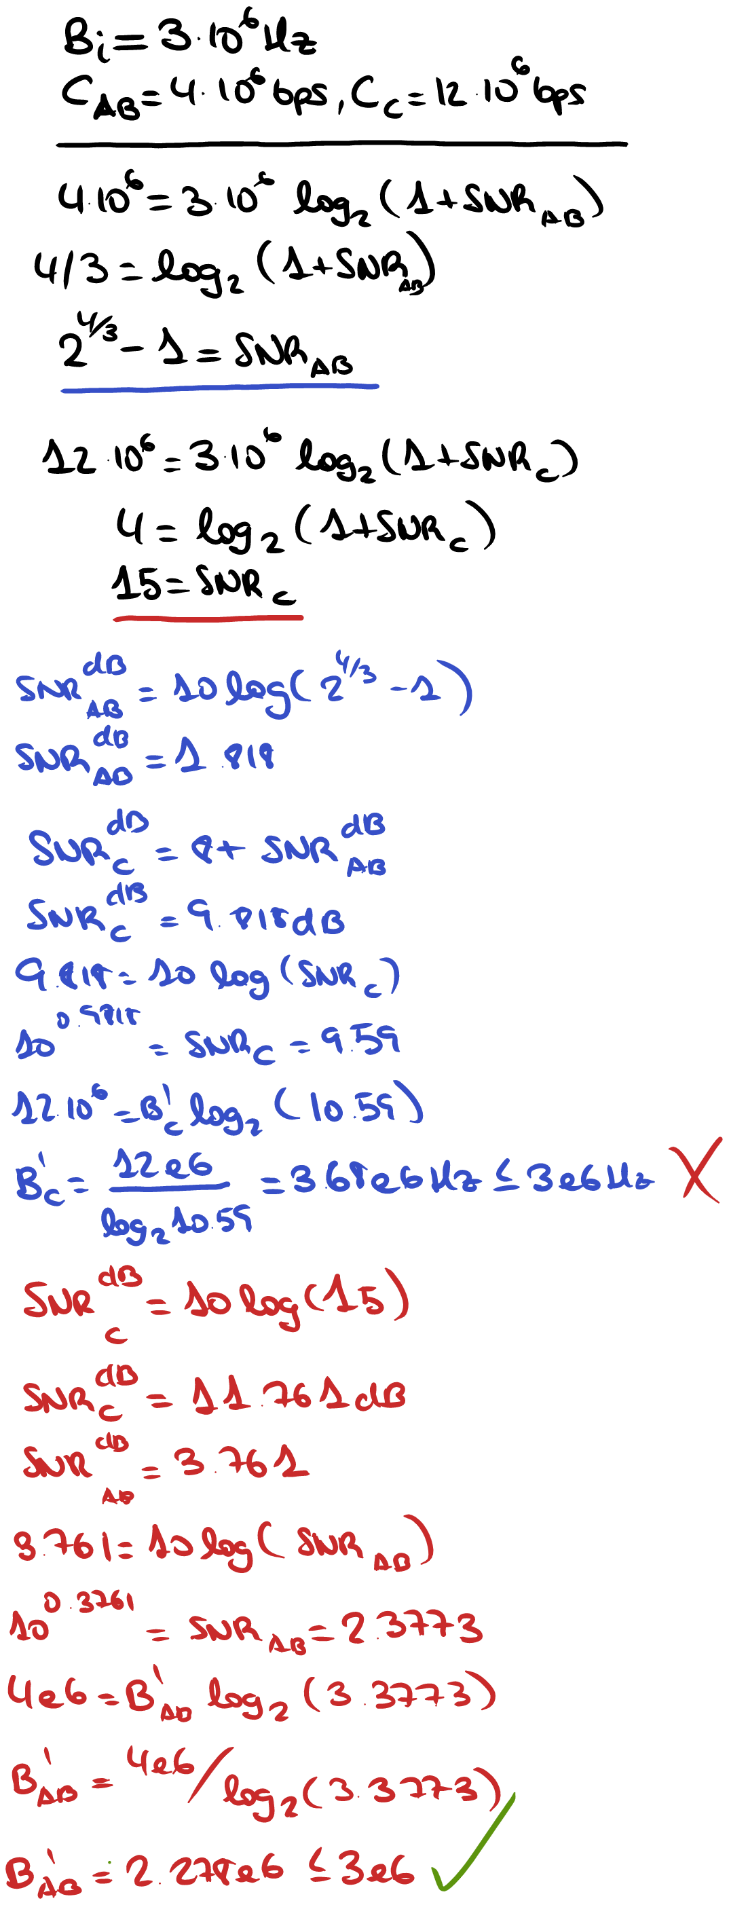 Bi = 3·10⁶ Hz
C_AB = 4·10⁶ bps, C_C = 12·10⁶ bps
4·10⁶ = 3·10⁶ log₂(1+SNR_AB)
4/3 = log₂(1+SNR_AB)
2^4/3 - 1 = SNR_AB
12·10⁶ = 3·10⁶ log₂(1+SNR_C)
4 = log₂(1+SNR_C)
15 = SNR_C
SNR_AB^dB = 10 log(2^4/3 - 1)
SNR_AB^dB = 1.818
SNR_C^dB = 8 + SNR_AB^dB
SNR_C^dB = 9.818 dB
9.818 = 10 log(SNR_C)
10^0.9818 = SNR_C = 9.59
12·10⁶ = B'_C log₂(10.59)
B'_C = 12e6 / log₂ 10.59 = 3.68e6 Hz ≤ 3e6 Hz X
SNR_C^dB = 10 log(15)
SNR_C^dB = 11.761 dB
SNR_AB^dB = 3.761
3.761 = 10 log(SNR_AB)
10^0.3761 = SNR_AB = 2.3773
4e6 = B'_AB log₂(3.3773)
B'_AB = 4e6/log₂(3.3773)
B'_AB = 2.278e6 ≤ 3e6 ✓